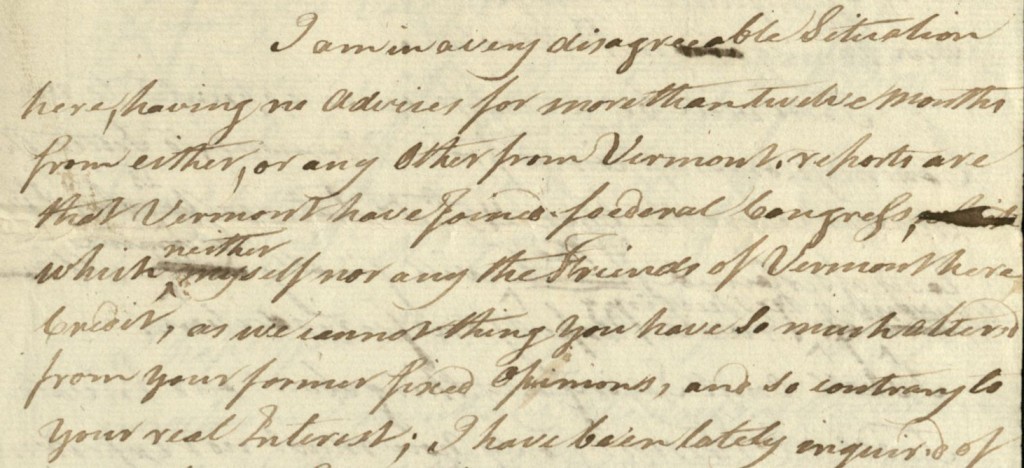 I am in a very disagreeable Situation
here, having no Advises for more than twelve Months
from either, or any Other from Vermont. reports are
that Vermont have Joined foederal Congress,
which neither myself nor any the Friends of Vermont here
Credit, as we cannot thing you have So much altered
from your former fixed Opinions, and so contrary to
your real Interest; I have been lately inquir.d of